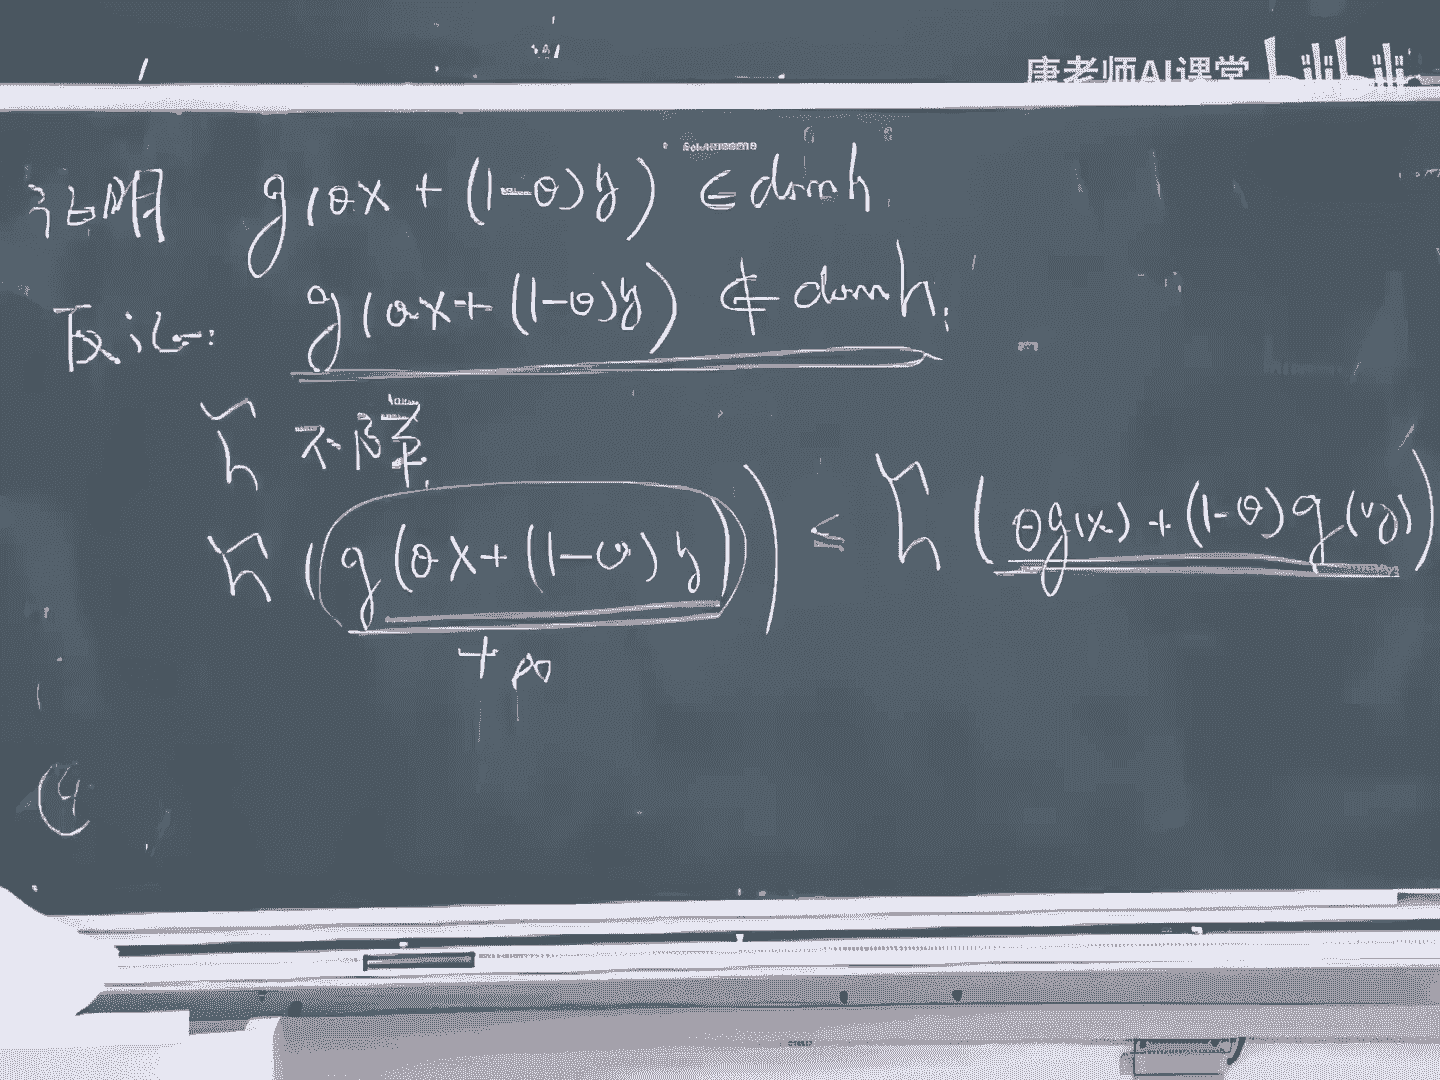 唐老师AI课堂
证明 g(θx + (1-θ)y) ∈ dom h
反证: g(θx + (1-θ)y) ∉ dom h.
h̃ 不降.
h̃ (g(θx + (1-θ)y)) ≤ h̃ (θg(x) + (1-θ)g(y))
+∞
(4